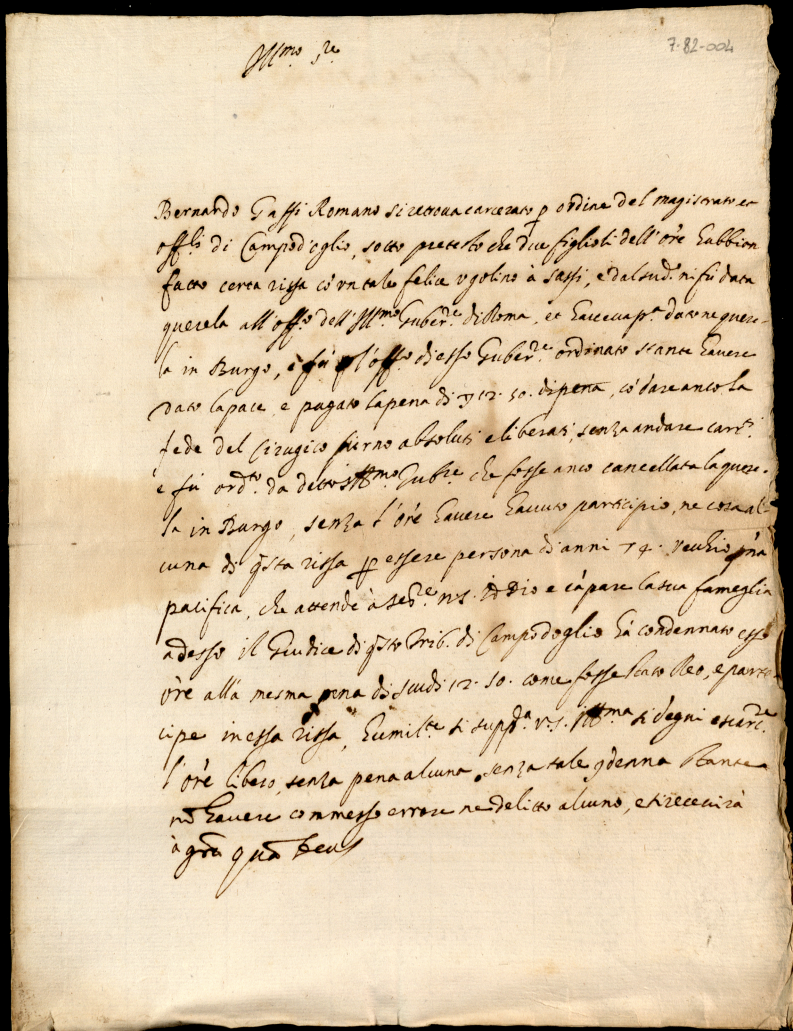 Ill.mo S.re
7-82-004
Bernardo Tassi Romano si retrova carcerato p ordine del magistrato et
off.li di Campod'oglio, sotto pretesto che due figlioli dell'ore habbion
fatto certa rissa cò un tale felice ugolino à sassi, e dal sud. ni fù data
querela all'off.o dell'Ill.mo Guber.re di Roma, et haveva p.a dato ne quere-
la in Burgo, e fù p l'off.o di esso Guber.re ordinato stante havere
dato la pace e pagato la pena di 12. 50. di pena, cò dare anco la
fede del Cirugico furno absoluti e liberati, senza andare carc.ti
e fù ord.to da detto Ill.mo Gub.re che fosse anco cancellata la quere-
la in Burgo, senza l'ore havere havuto participio, ne cosa al-
cuna di qsta rissa p essere persona di anni 74. vechio
pacifica, che attende à ser.re N.S. Iddio e càpare la sua fameglia
adesso il Giudice di qsto Trib. di Campodoglio hà condennato esso
ore alla mesma pena di scudi 12. 50. come fosse stato Reo, e parte-
cipe in essa rissa, humil.te si supp.a V.S. Ill.ma si degni escarc.re
l'ore libero, senza pena alcuna, senza tale qdenna stante
nò havere commesso errore ne delitto alcuno, e si receverà
à gra quà Deus